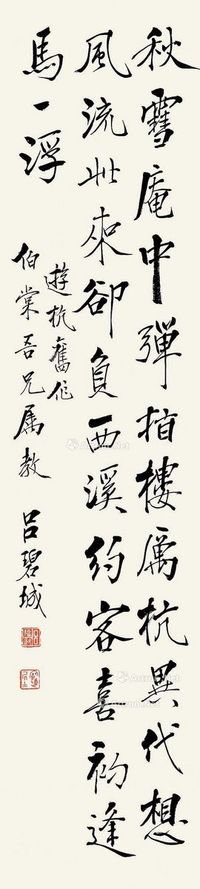 秋雪庵中彈指樓厲杭異代想
風流此來卻負西溪約客喜初逢
馬一浮
遊杭舊作
伯棠吾兄屬教
呂碧城